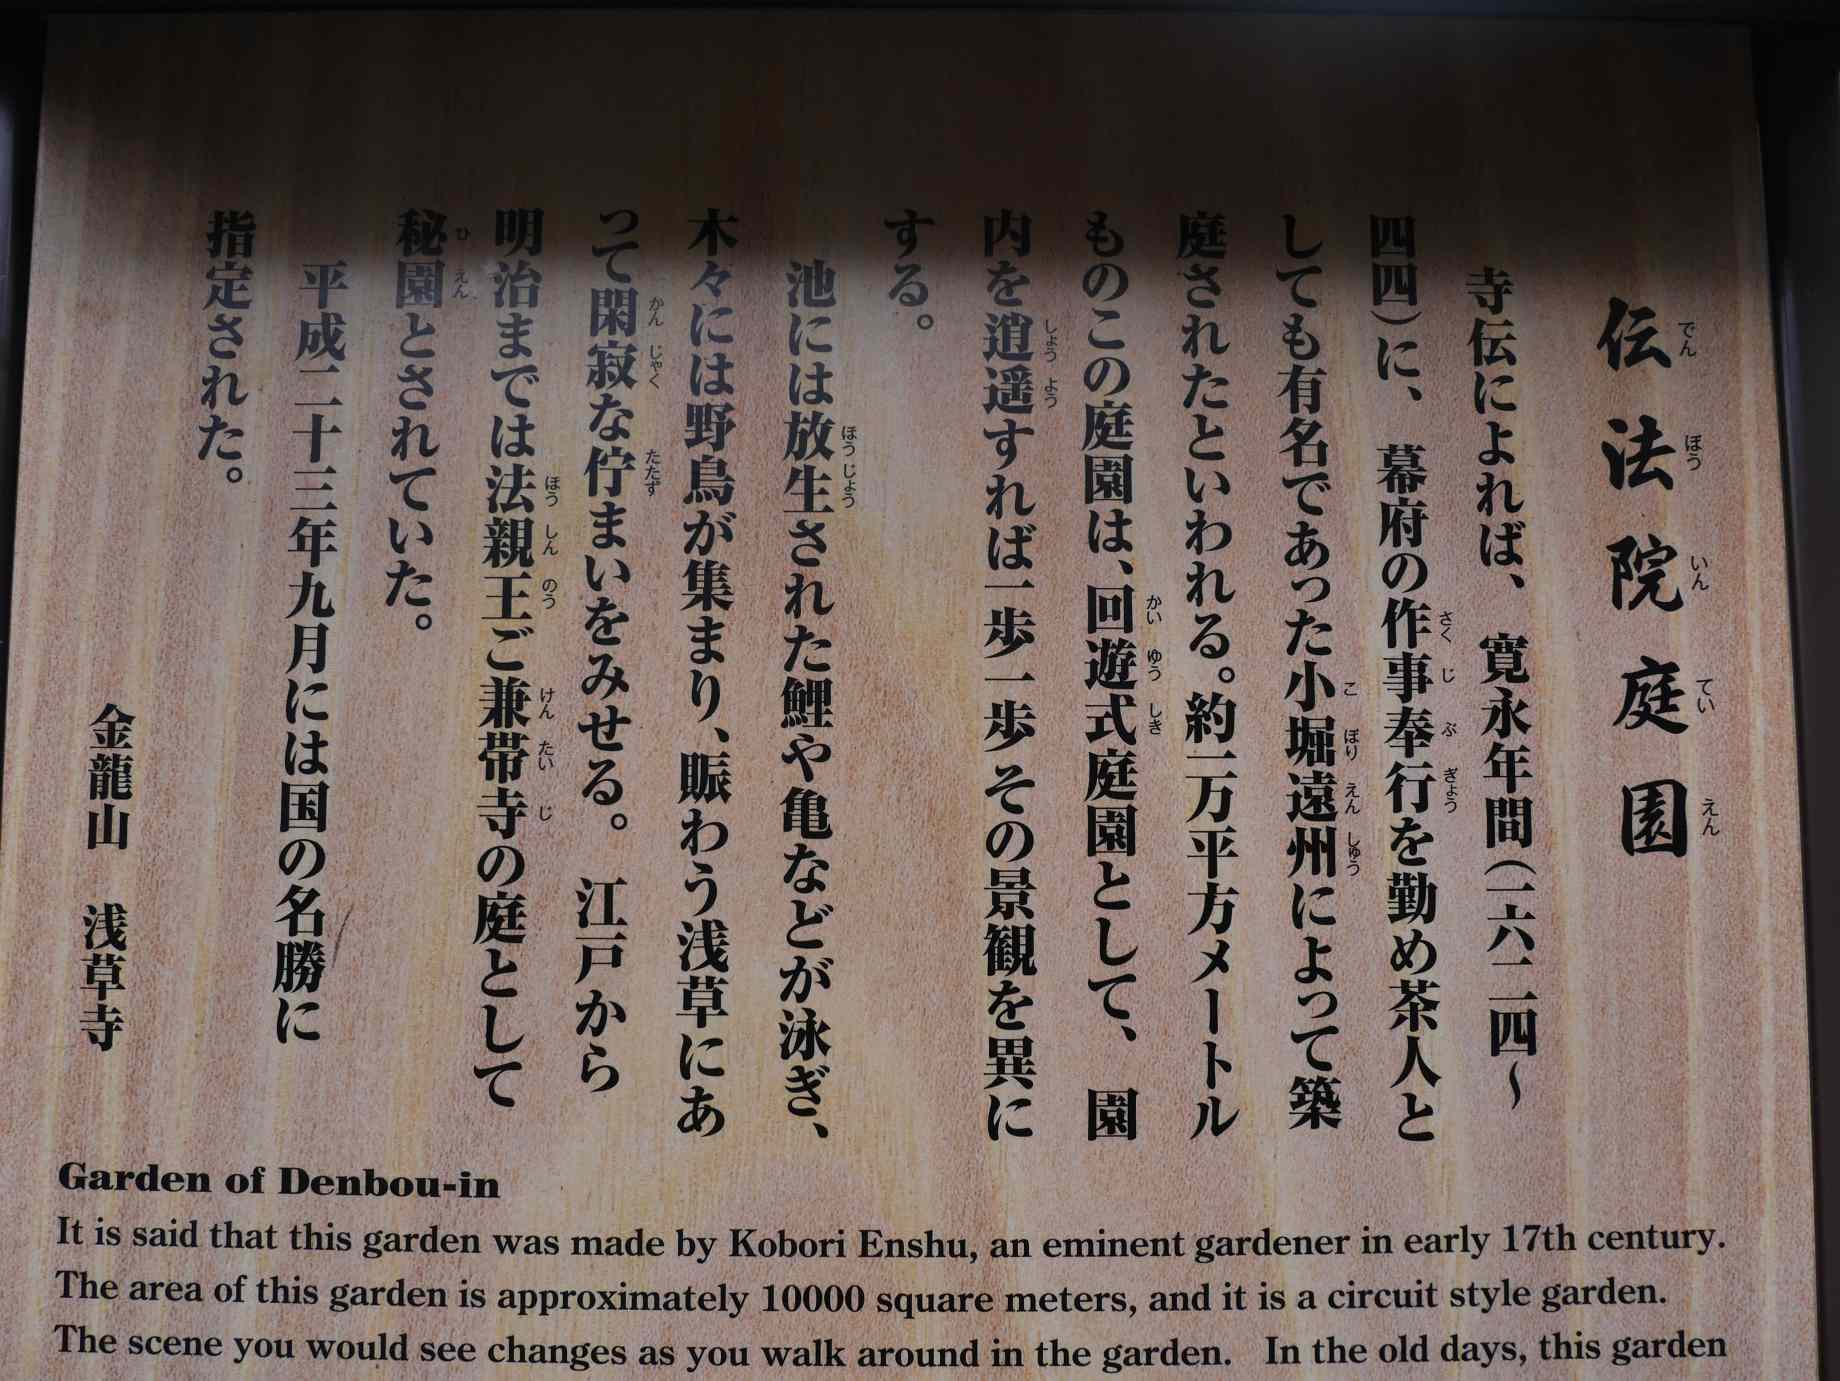 伝法院庭園
寺伝によれば、寛永年間（一六二四〜
四四）に、幕府の作事奉行を勤め茶人と
しても有名であった小堀遠州によって築
庭されたといわれる。約一万平方メートル
ものこの庭園は、回遊式庭園として、園
内を逍遥すれば一歩一歩その景観を異に
する。
池には放生された鯉や亀などが泳ぎ、
木々には野鳥が集まり、賑わう浅草にあ
って閑寂な佇まいをみせる。江戸から
明治までは法親王ご兼帯寺の庭として
秘園とされていた。
平成二十三年九月には国の名勝に
指定された。
金龍山　浅草寺
Garden of Denbou-in
It is said that this garden was made by Kobori Enshu, an eminent gardener in early 17th century.
The area of this garden is approximately 10000 square meters, and it is a circuit style garden.
The scene you would see changes as you walk around in the garden. In the old days, this garden